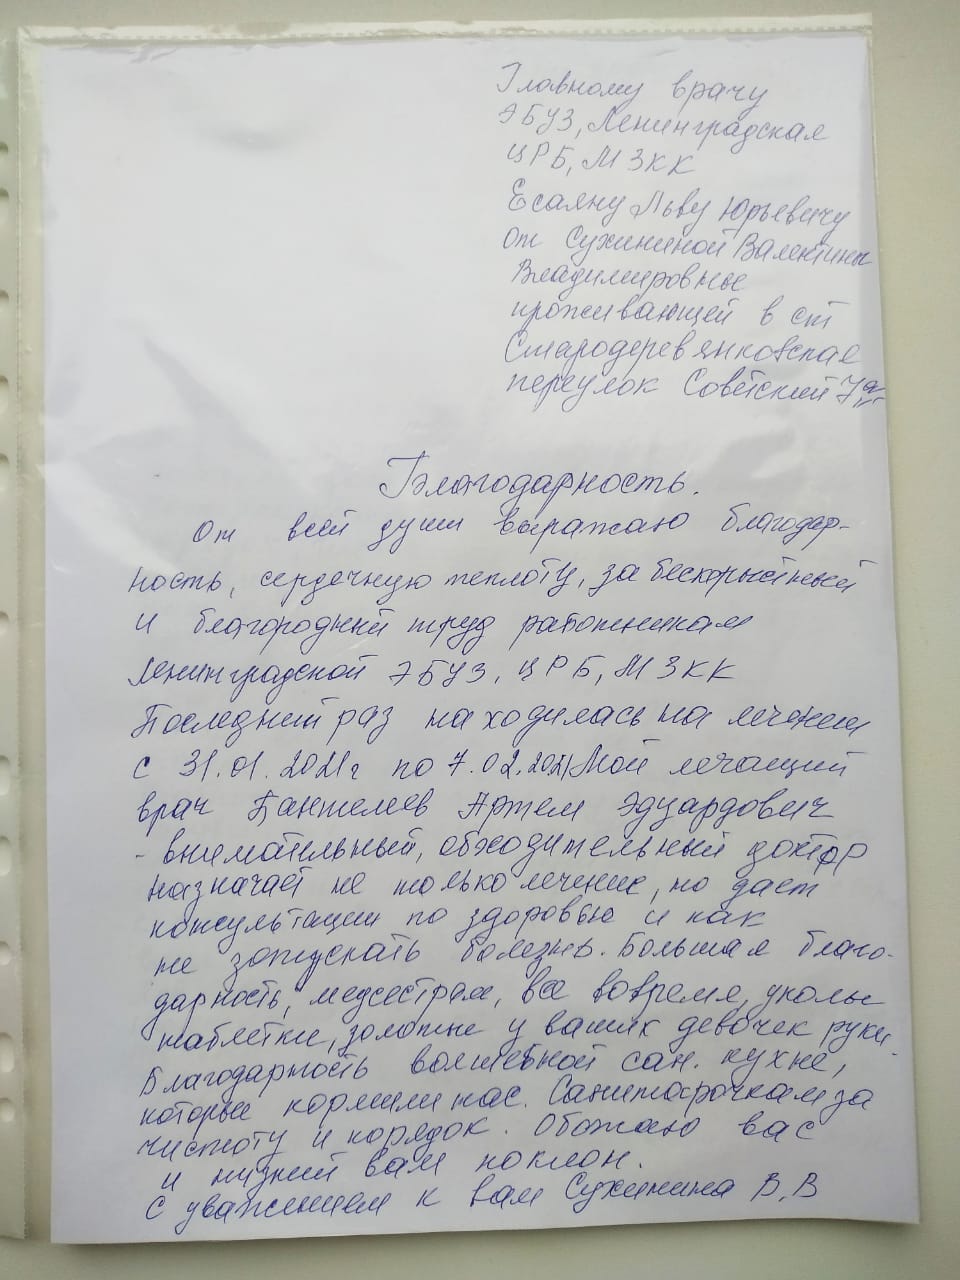 Главному врачу
ЭБУЗ, Ленинградская
ЦРБ, МЗКК
Есаяну Льву Юрьевичу
от Сухининой Валентины
Владимировные
проживающей в ст
Стародеревянковская
переулок Советский 7а
Благодарность.
От всей души выражаю благодар-
ность, сердечную теплоту, за бескорыстный
и благородный труд работникам
Ленинградской ЭБУЗ, ЦРБ, МЗКК
Последний раз находилась на лечении
с 31.01.2021г по 7.02.2021 Мой лечащий
врач Пантелеев Артем Эдуардович
- внимательный, обходительный доктор
назначает не только лечение, но дает
консультации по здоровью и как
не запускать болезнь. Большая благо-
дарность, медсестрам, все вовремя, уколы
таблетки, золотые у ваших девочек руки.
Благодарность волшебной сан. кухне,
которые кормили нас. Санитарочкам за
чистоту и порядок. Обожаю вас
и низкий вам поклон.
С уважением к вам Сухинина В.В